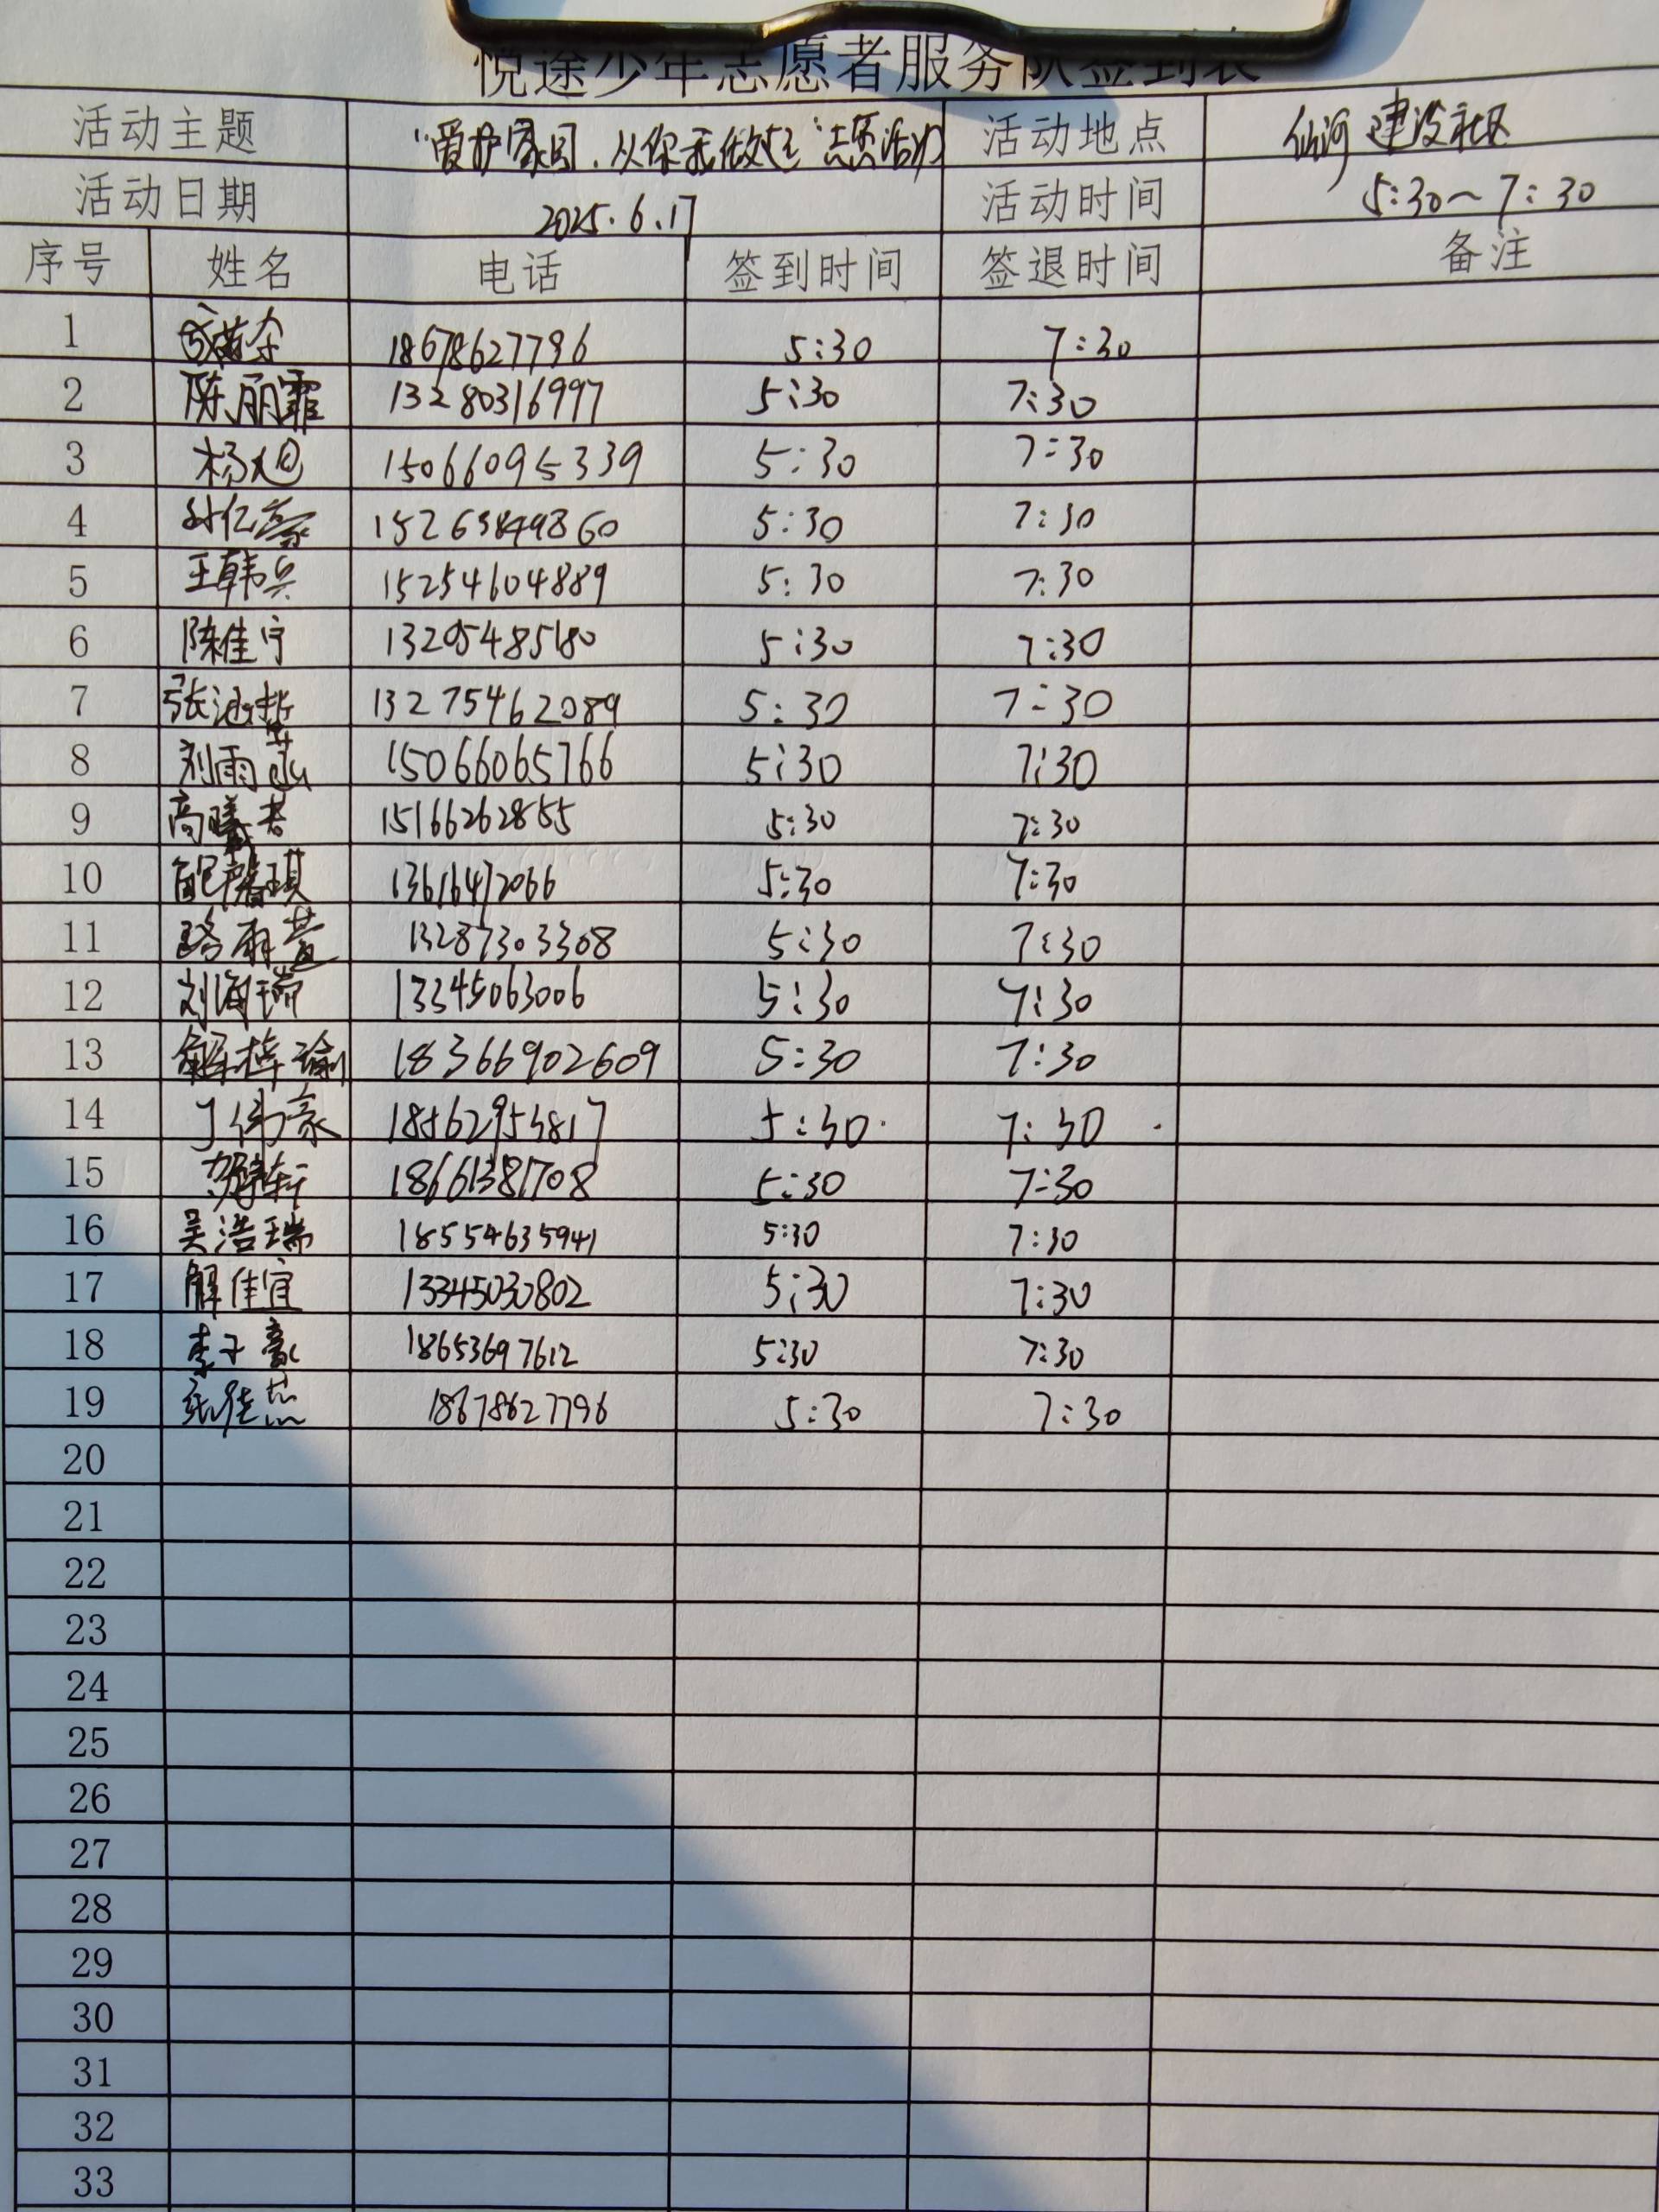 悦途少年志愿者服务队签到表
活动主题 "爱护家园,从你我做起"志愿活动 活动地点 仙河建设社区
活动日期 2025.6.17 活动时间 5:30~7:30
序号 姓名 电话 签到时间 签退时间 备注
1 18678627796 5:30 7:30
2 陈丽霏 13280316997 5:30 7:30
3 杨旭 15066095339 5:30 7:30
4 孙亿豪 15263849860 5:30 7:30
5 王韩兵 15254604889 5:30 7:30
6 陈佳宁 13205485180 5:30 7:30
7 张涵哲 13275462089 5:30 7:30
8 刘雨菡 15066065766 5:30 7:30
9 高曦若 15166262855 5:30 7:30
10 13616472066 5:30 7:30
11 路雨萱 13287303308 5:30 7:30
12 刘海瑞 13345063006 5:30 7:30
13 解梓瑜 18366902609 5:30 7:30
14 丁伟豪 18562953817 5:30 7:30
15 18661381708 5:30 7:30
16 吴浩瑞 18554635941 5:30 7:30
17 解佳宜 13345030802 5:30 7:30
18 李子豪 18653697612 5:30 7:30
19 18678627796 5:30 7:30
20
21
22
23
24
25
26
27
28
29
30
31
32
33